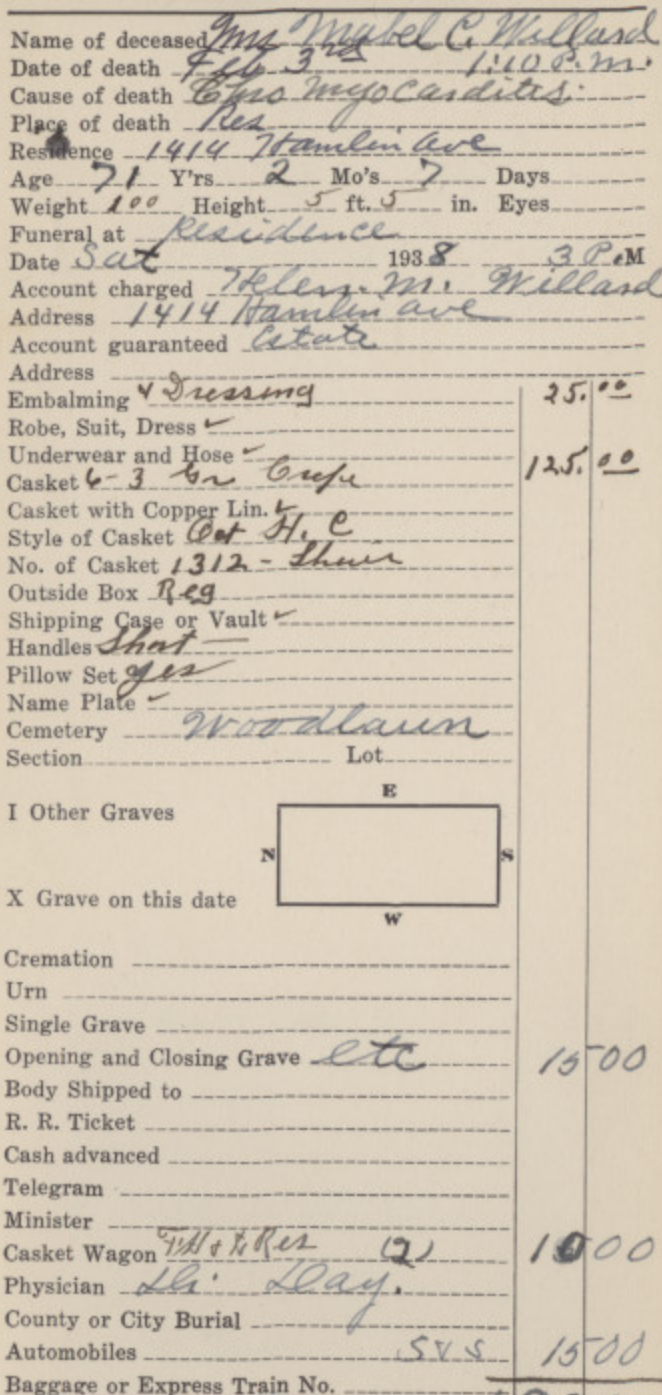 Name of deceased Mrs Mabel C. Willard
Date of death Feb 3rd 1:10 P.m.
Cause of death Chro Myocarditis.
Place of death Res
Residence 1414 Hamlin ave
Age 71 Y'rs 2 Mo's 7 Days
Weight 100 Height 5 ft. 5 in. Eyes
Funeral at Residence
Date Sat 1938 3 P.M
Account charged Helen. M. Willard
Address 1414 Hamlin ave
Account guaranteed Estate
Address
Embalming & Dressing 25.00
Robe, Suit, Dress ✓
Underwear and Hose ✓
Casket 6-3 Gr Crepe 125.00
Casket with Copper Lin. ✓
Style of Casket Oct H. C
No. of Casket 1312 -
Outside Box Reg
Shipping Case or Vault ✓
Handles Short —
Pillow Set yes
Name Plate ✓
Cemetery Woodlawn
Section Lot
E
I Other Graves
N S
X Grave on this date
W
Cremation
Urn
Single Grave
Opening and Closing Grave etc 15 00
Body Shipped to
R. R. Ticket
Cash advanced
Telegram
Minister
Casket Wagon Res (2) 10 00
Physician Dr. Day.
County or City Burial
Automobiles S & S 15 00
Baggage or Express Train No.